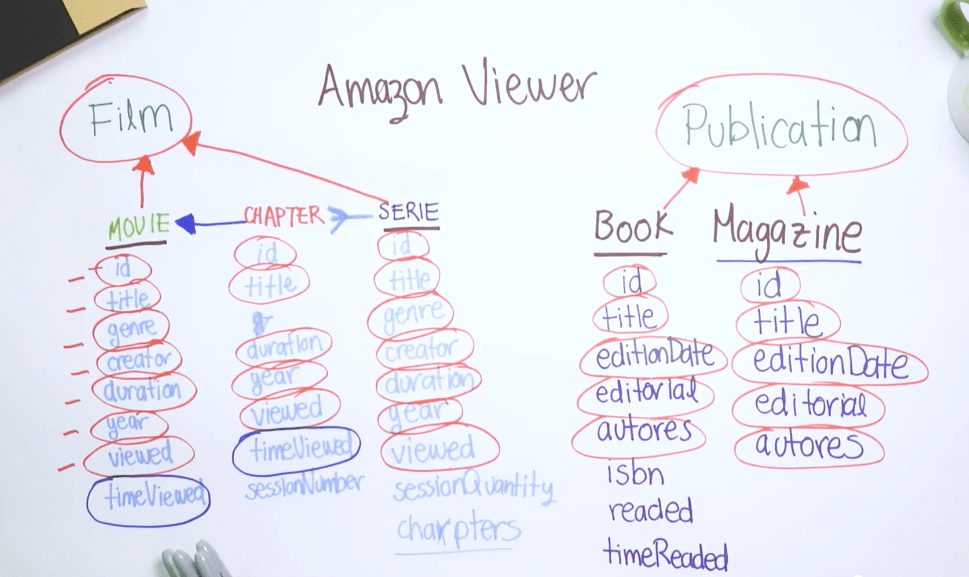 Amazon Viewer
Film
MOVIE
id
title
genre
creator
duration
year
viewed
timeViewed
CHAPTER
id
title
duration
year
viewed
timeViewed
sessionNumber
SERIE
id
title
genre
creator
duration
year
viewed
sessionQuantity
charpters
Publication
Book
id
title
editionDate
editorial
autores
isbn
readed
timeReaded
Magazine
id
title
editionDate
editorial
autores